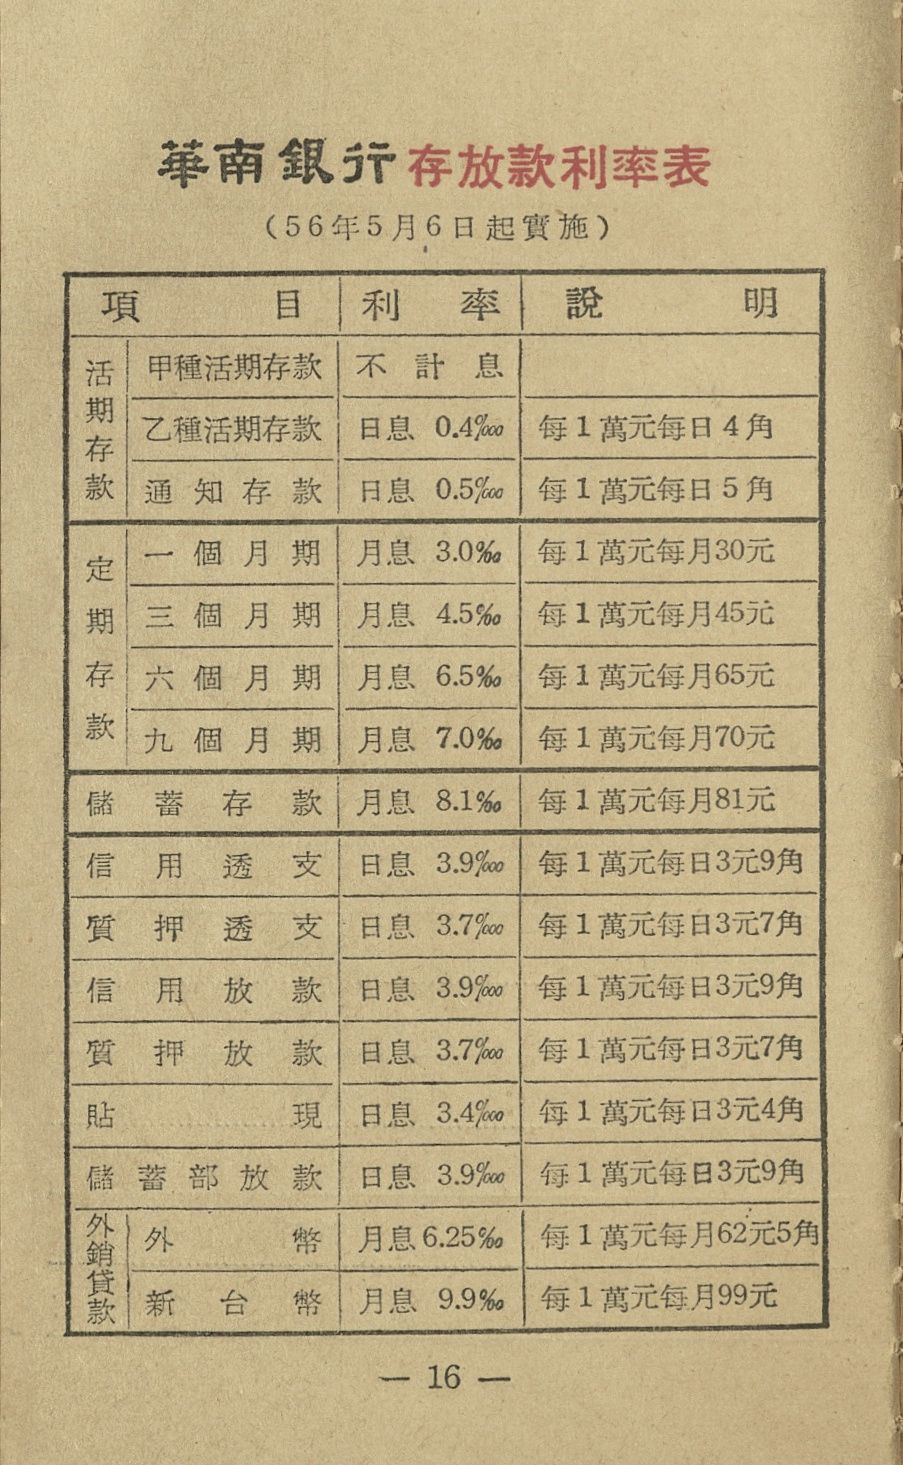 華南銀行存放款利率表
(56年5月6日起實施)
項目 利率 說明
活期存款
甲種活期存款 不計息
乙種活期存款 日息 0.4‱ 每1萬元每日4角
通知存款 日息 0.5‱ 每1萬元每日5角
定期存款
一個月期 月息 3.0‰ 每1萬元每月30元
三個月期 月息 4.5‰ 每1萬元每月45元
六個月期 月息 6.5‰ 每1萬元每月65元
九個月期 月息 7.0‰ 每1萬元每月70元
儲蓄存款 月息 8.1‰ 每1萬元每月81元
信用透支 日息 3.9‱ 每1萬元每日3元9角
質押透支 日息 3.7‱ 每1萬元每日3元7角
信用放款 日息 3.9‱ 每1萬元每日3元9角
質押放款 日息 3.7‱ 每1萬元每日3元7角
貼現 日息 3.4‱ 每1萬元每日3元4角
儲蓄部放款 日息 3.9‱ 每1萬元每日3元9角
外銷貸款
外幣 月息6.25‰ 每1萬元每月62元5角
新台幣 月息 9.9‰ 每1萬元每月99元
— 16 —